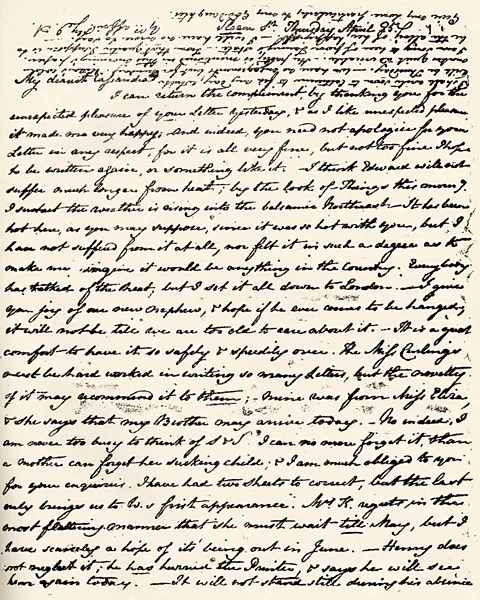 Sloane St Thursday April 25th
My dearest Cassandra
I can return the compliment by thanking you for the
unexpected pleasure of your Letter yesterday, & as I like unexpected pleasure,
it made me very happy; And indeed, you need not apologise for your
Letter in any respect, for it is all very fine, but not too fine I hope
to be written again, or something like it. I think Edward will not
suffer much longer from heat; by the look of Things this morng
I suspect the weather is rising into the balsamic Northeast. It has been
hot here, as you may suppose, since it was so hot with you, but I
have not suffered from it at all, nor felt it in such a degree as to
make me imagine it would be anything in the Country. Everybody
has talked of the heat, but I set it all down to London. — I give
you joy of our new nephew, & hope if he ever comes to be hanged,
it will not be till we are too old to care about it. — It is a great
comfort to have it so safely & speedily over. The Miss Curlings
must be hard worked in writing so many Letters, but the novelty
of it may recommend it to them; — mine was from Miss Eliza,
& she says that my Brother may arrive today. — No indeed, I
am never too busy to think of S&S. I can no more forget it, than
a mother can forget her sucking child; & I am much obliged to you
for your enquiries. I have had two sheets to correct, but the last
only brings us to W.s first appearance. Mrs K. regrets in the
most flattering manner that she must wait till May, but I
have scarcely a hope of its being out in June. — Henry does
not neglect it; he has hurried the Printer, & says he will see
him again today. — It will not stand still during his absence